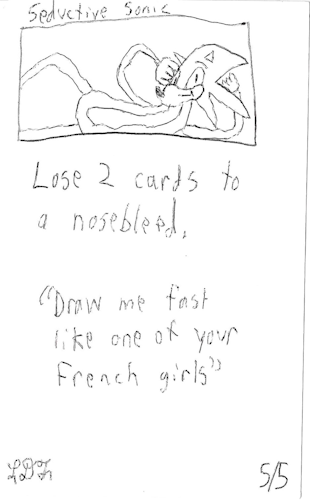 Seductive Sonic
Lose 2 cards to
a nosebleed.
"Draw me fast
like one of your
French girls"
5/5